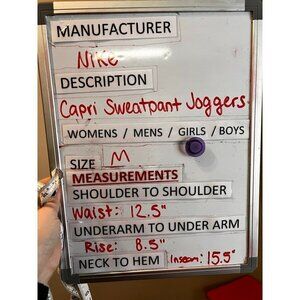 MANUFACTURER
Nike
DESCRIPTION
Capri Sweatpant Joggers
WOMENS / MENS / GIRLS / BOYS
SIZE M
MEASUREMENTS
SHOULDER TO SHOULDER
Waist: 12.5"
UNDERARM TO UNDER ARM
Rise: 8.5"
NECK TO HEM Inseam: 15.5"